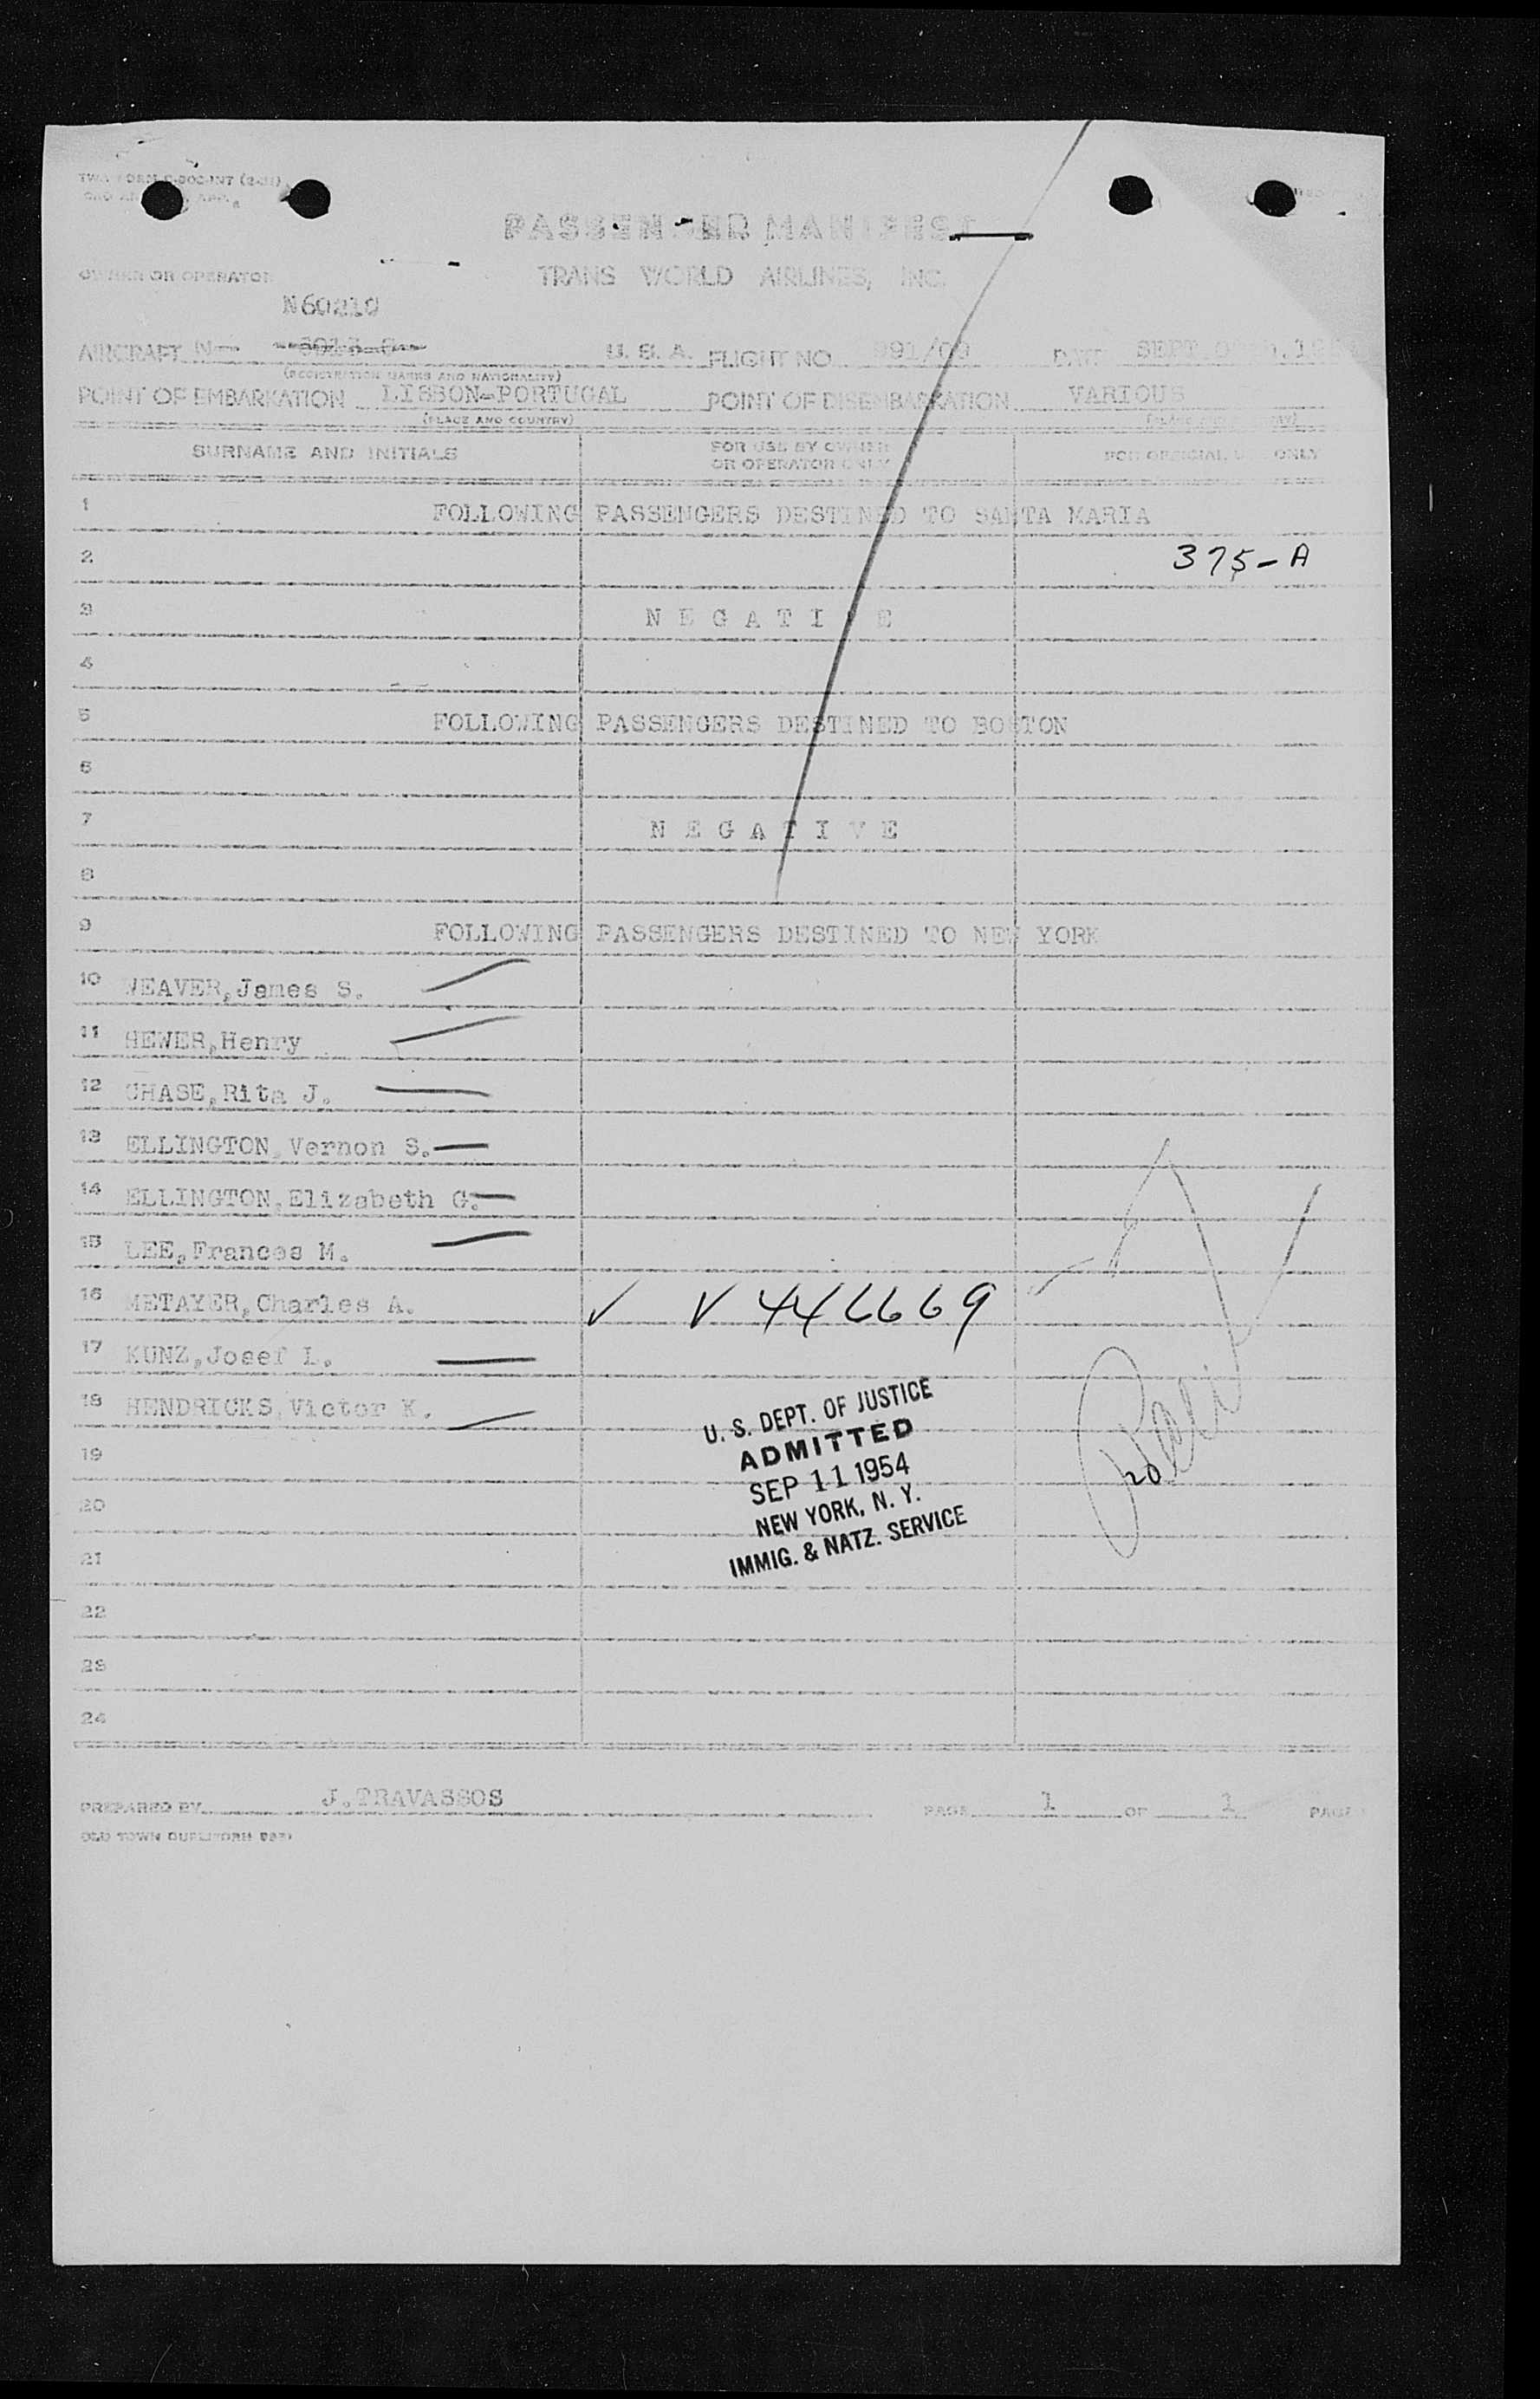 PASSENGER MANIFEST
OWNER OR OPERATOR
TRANS WORLD AIRLINES, INC.
N60210
AIRCRAFT N U. S. A. FLIGHT NO. 991/09 DATE SEPT.
(REGISTRATION MARKS AND NATIONALITY)
POINT OF EMBARKATION LISBON-PORTUGAL POINT OF DISEMBARKATION VARIOUS
(PLACE AND COUNTRY)
SURNAME AND INITIALS FOR USE BY OWNER OR OPERATOR ONLY FOR OFFICIAL USE ONLY
1 FOLLOWING PASSENGERS DESTINED TO SANTA MARIA
2 375-A
3 N E G A T I V E
4
5 FOLLOWING PASSENGERS DESTINED TO BOSTON
6
7 N E G A T I V E
8
9 FOLLOWING PASSENGERS DESTINED TO NEW YORK
10 WEAVER,James S.
11 HEWER,Henry
12 CHASE,Rita J.
13 ELLINGTON,Vernon S.
14 ELLINGTON,Elizabeth G.
15 LEE,Frances M.
16 METAYER,Charles A. ✓ V 446669
17 KUNZ,Josef L.
18 HENDRICKS,Victor K.
U. S. DEPT. OF JUSTICE
ADMITTED
SEP 11 1954
NEW YORK, N. Y.
IMMIG. & NATZ. SERVICE
19
20
21
22
23
24
PREPARED BY J.TRAVASSOS PAGE 1 OF 1 PAGE